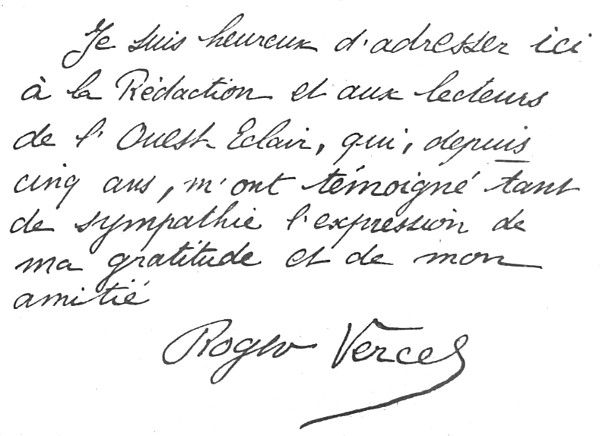 Je suis heureux d'adresser ici
à la Rédaction et aux lecteurs
de l'Ouest Eclair, qui, depuis
cinq ans, m'ont témoigné tant
de sympathie l'expression de
ma gratitude et de mon
amitié
Roger Vercel